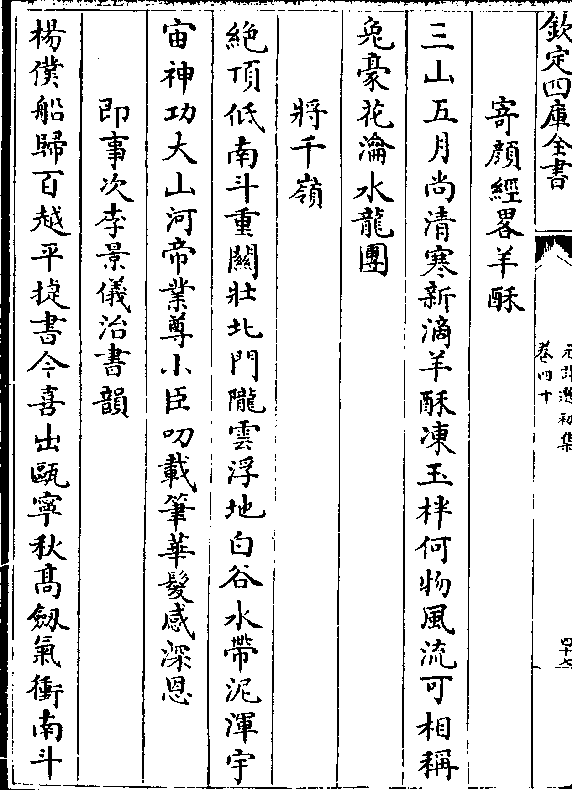 欽定四庫全書
元詩選初集
卷四十
寄顔經畧羊酥
三山五月尚清寒新滴羊酥凍玉柈何物風流可相稱
兔豪花瀹水龍團
將千嶺
絶頂低南斗重關壯北門隴雲浮地白谷水帶泥渾宇
宙神功大山河帝業尊小臣叨載筆華髪感深恩
即事次李景儀治書韻
楊僕船歸百越平捷書今喜出甌寧秋髙劔氣衝南斗